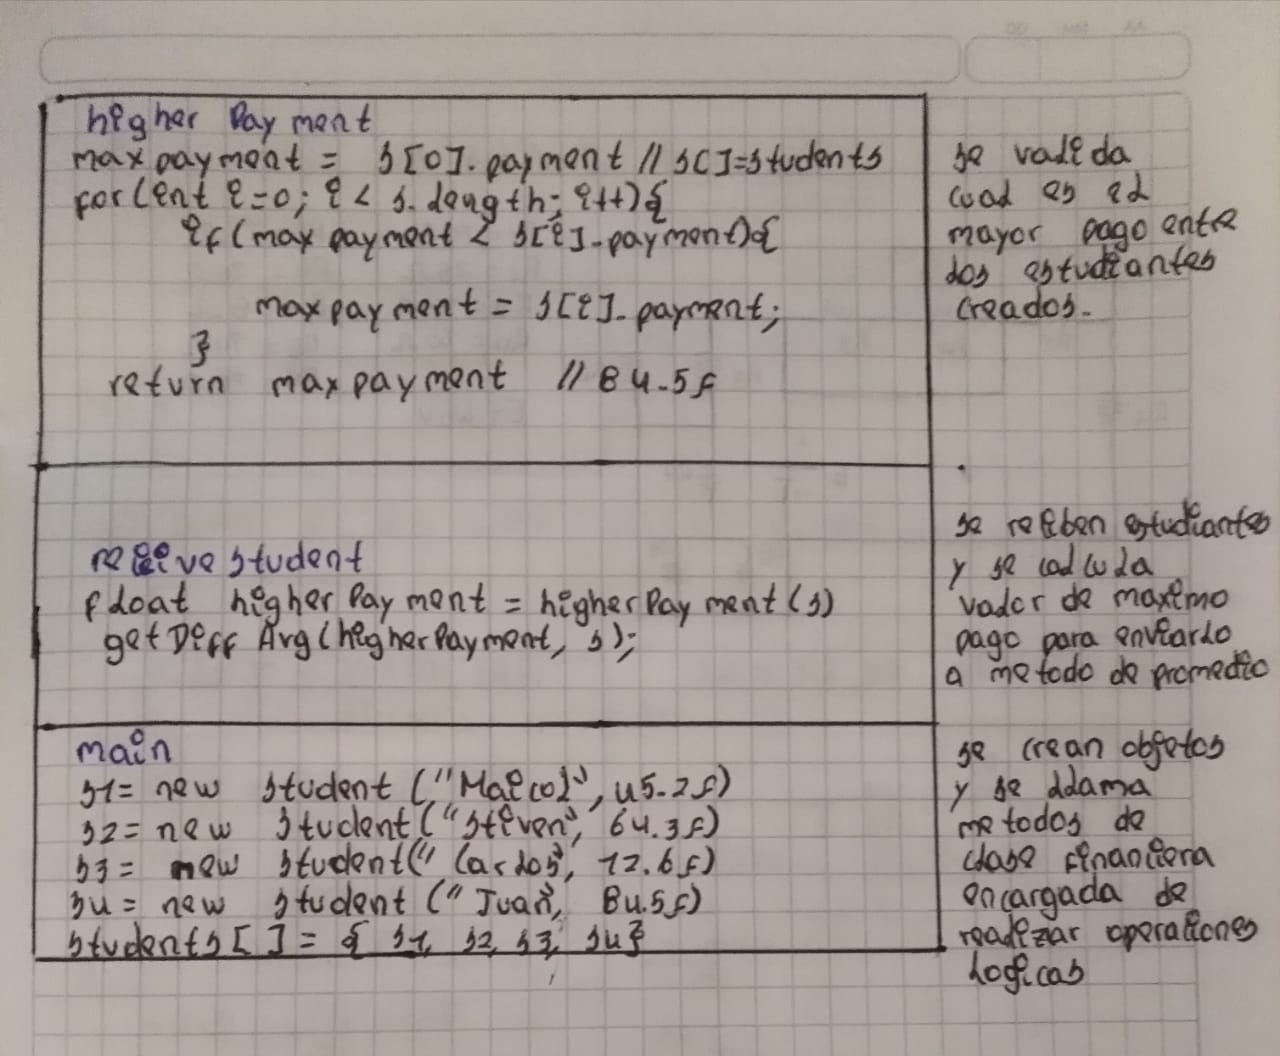 higher Payment
maxpayment = s[0].payment // s[]=students
for(int i=0; i < s.length; i++){
if(maxpayment < s[i].payment){
maxpayment = s[i].payment;
}
return maxpayment // 84.5f
se valida
cual es el
mayor pago entre
los estudiantes
creados.
receive student
float higherPayment = higherPayment(s)
getDiffArg(higherPayment, s);
se reciben estudiantes
y se calcula
valor de maximo
pago para enviarlo
a metodo de promedio
main
s1= new student ("Maicol", 45.2f)
s2= new student("Stiven", 64.3f)
s3= new student("Carlos", 12.6f)
s4= new student ("Juan", 84.5f)
students[ ] = { s1, s2, s3, s4}
se crean objetos
y se llama
metodos de
clase financiera
encargada de
realizar operaciones
logicas